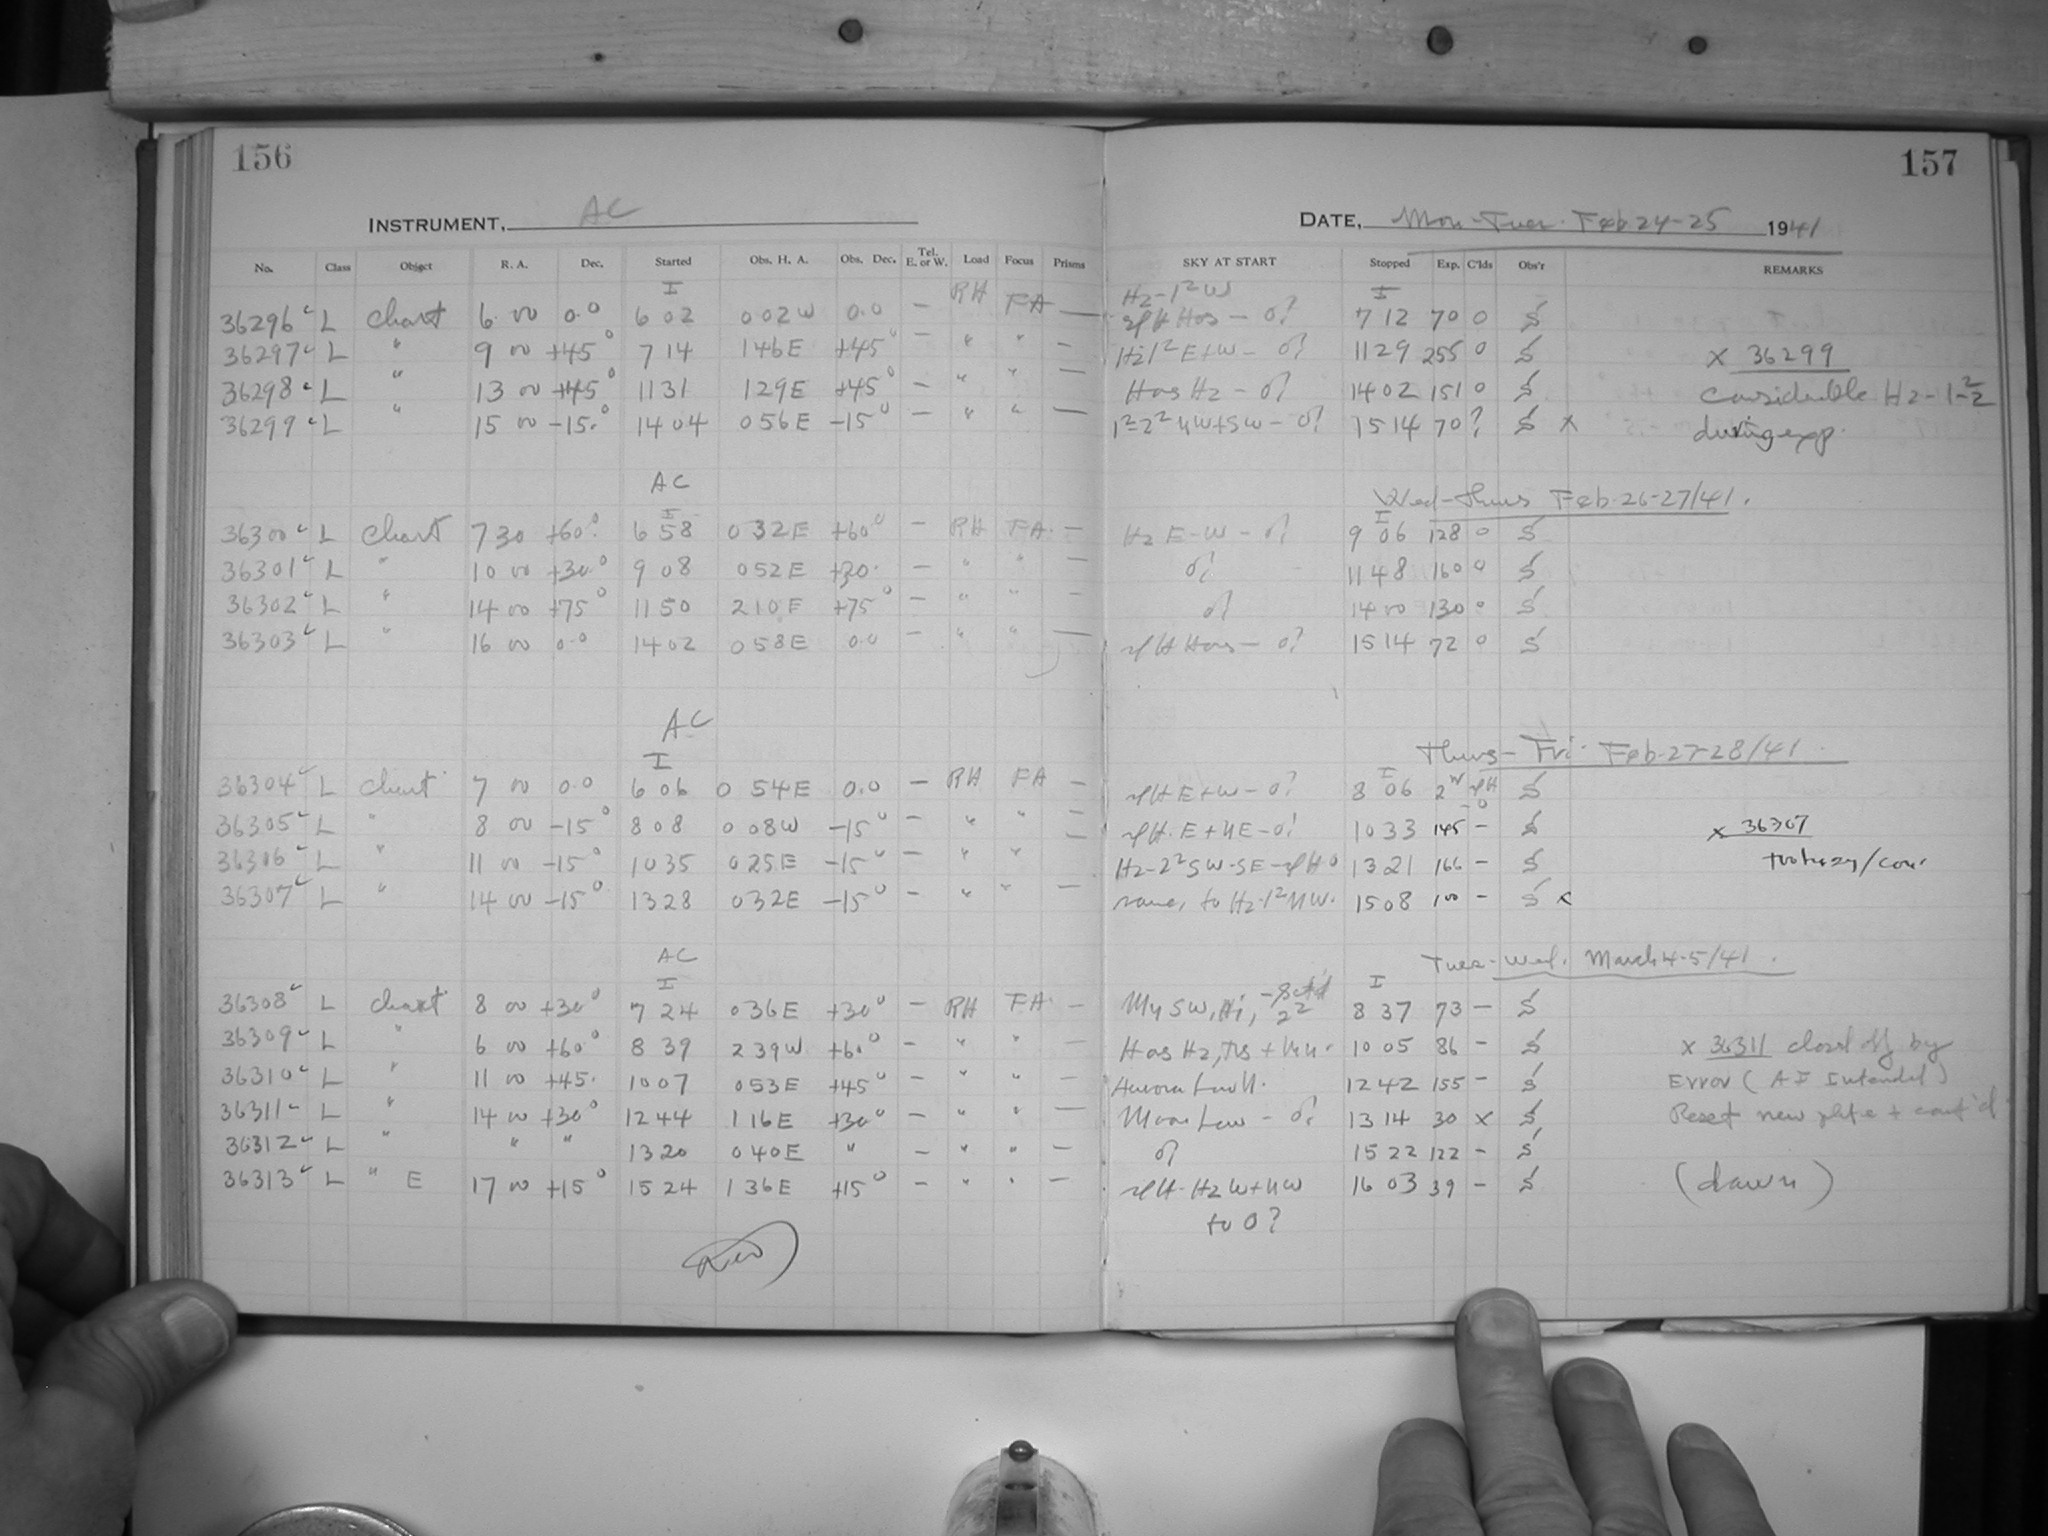 156
INSTRUMENT, AC
No. Class Object R. A. Dec. Started Obs. H. A. Obs. Dec. Tel. E. or W. Load Focus Prisms
36296 L Chart 6 00 0.0 I 6 02 0 02 W 0.0 — RH FA —
36297 L " 9 00 +45° 7 14 1 46 E +45° — " " —
36298 L " 13 00 +45° 11 31 1 29 E +45° — " " —
36299 L " 15 00 -15.° 14 04 0 56 E -15° — " " —
AC
36300 L Chart 7 30 +60° I 6 58 0 32 E +60° — RH FA —
36301 L " 10 00 +30° 9 08 0 52 E +30. — " " —
36302 L " 14 00 +75° 11 50 2 10 E +75° — " " —
36303 L " 16 00 0.0 14 02 0 58 E 0.0 — " " —
AC
36304 L Chart 7 00 0.0 I 6 06 0 54 E 0.0 — RH FA —
36305 L " 8 00 -15° 8 08 0 08 W -15° — " " —
36306 L " 11 00 -15° 10 35 0 25 E -15° — " "
36307 L " 14 00 -15° 13 28 0 32 E -15° — " " —
AC
36308 L Chart 8 00 +30° I 7 24 0 36 E +30° — RH FA —
36309 L " 6 00 +60° 8 39 2 39 W +60° — " " —
36310 L " 11 00 +45. 10 07 0 53 E +45° — " " —
36311 L " 14 00 +30° 12 44 1 16 E +30° — " " —
36312 L " " " 13 20 0 40 E " — " " —
36313 L " E 17 00 +15° 15 24 1 36 E +15° — " " —
157
DATE, Mon-Tues. Feb. 24-25 1941
SKY AT START Stopped Exp. C'lds Obs'r REMARKS
Hz-1²W
Has — 0? I 7 12 70 0 S
E+W — 0? 11 29 255 0 S x 36299
Has Hz — 0? 14 02 151 0 S Considerable Hz-1-2²
1²-2² NW+SW — 0? 15 14 70 ? S x during exp.
Wed-Thurs Feb. 26-27/41.
Hz E-W — 0? I 9 06 128 0 S
0? 11 48 160 0 S
0? 14 00 130 0 S
0? 15 14 72 0 S
Thurs-Fri. Feb. 27-28/41.
E+W — 0? I 8 06 S
E+NE — 0? 10 33 145 — S x 36307
Hz-2² SW-SE 13 21 166 — S too hazy/con.
same, to Hz-1² NW. 15 08 100 — S x
Tues-Wed. March 4-5/41.
SW, 2² I 8 37 73 — S
Has Hz, 10 05 86 — S x 36311 closed off by
Aurora 12 42 155 — S Error (AI Intended)
Moon Low — 0? 13 14 30 x S Reset new plate + cont'd
0? 15 22 122 — S
Hz W+NW 16 03 39 — S (dawn)
to 0?